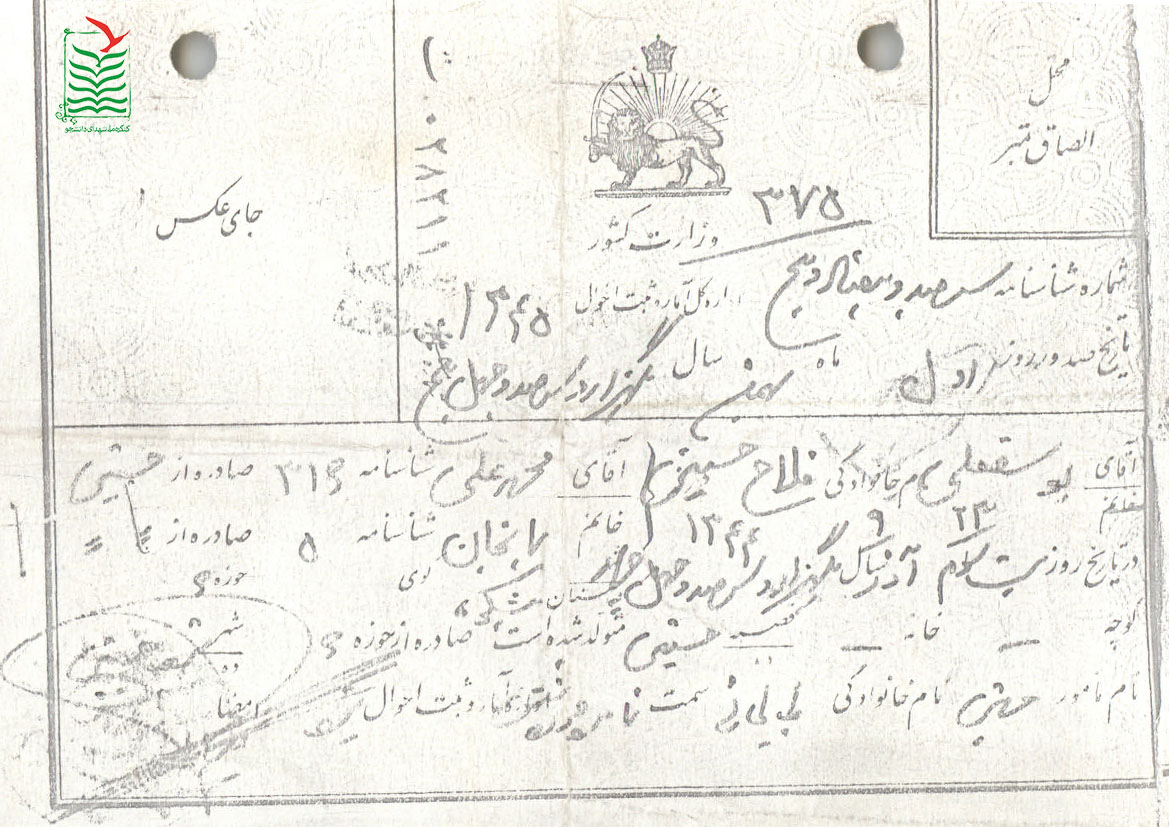 کنگره ملی شهدای دانشجو
محل
الصاق تمبر
جای عکس
۰۲۸۲۱۱
۳۷۵
وزارت کشور
شماره شناسنامه سیصد و هفتاد و پنج
اداره کل آمار و ثبت احوال ۱۳۴۵
تاریخ صدور روز اول ماه بهمن سال یکهزار و سیصد و چهل و پنج
آقای یوسفعلی نام خانوادگی فلاح حسینی آقای محمد علی شناسنامه ۳۱۶ صادره از حسینی
خانم ۲۳ ۹ ۱۳۴۴ خانم شناسنامه ۵ صادره از "
در تاریخ روز بیست و سوم آذر سال یکهزار و سیصد و چهل و چهار شهرستان حوزه ۶
کوچه – خانه – حسینی متولد شده است صادره از حوزه ۶ شهر
ده
نام مامور نام خانوادگی سمت آمار و ثبت احوال امضاء